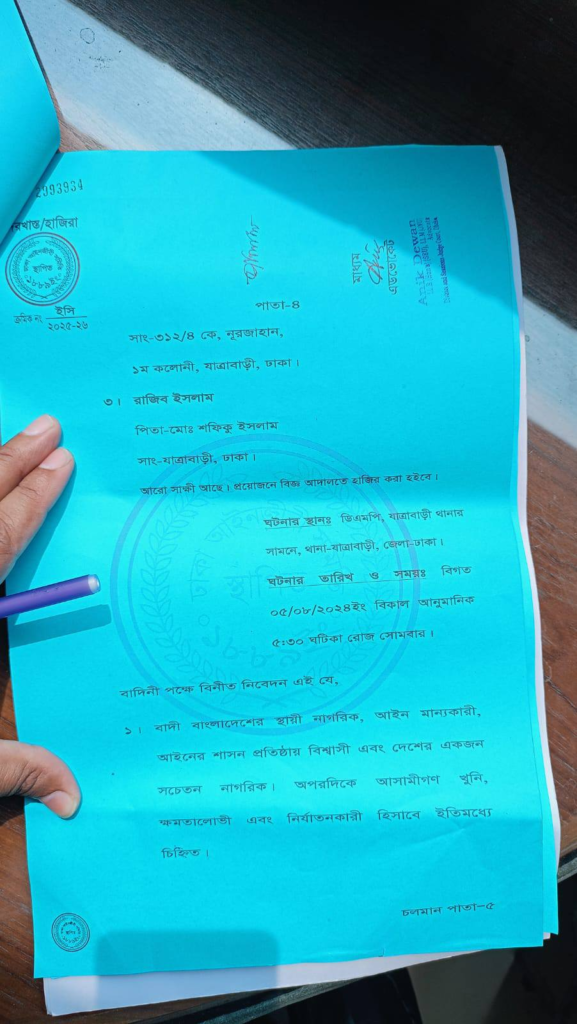 2993934
রখাস্ত/হাজিরা
স্থাপিত
১৮৮৯ইং
ক্রমিক নং ইসি
২০২৫-২৬
মাধ্যম
এডভোকেট
পাতা-৪
সাং-৩১২/৪ কে, নূরজাহান,
১ম কলোনী, যাত্রাবাড়ী, ঢাকা।
৩। রাজিব ইসলাম
পিতা-মোঃ শফিকু ইসলাম
সাং-যাত্রাবাড়ী, ঢাকা।
আরো সাক্ষী আছে। প্রয়োজনে বিজ্ঞ আদালতে হাজির করা হইবে।
ঘটনার স্থানঃ ডিএমপি, যাত্রাবাড়ী থানার
সামনে, থানা-যাত্রাবাড়ী, জেলা-ঢাকা।
ঘটনার তারিখ ও সময়ঃ বিগত
০৫/০৮/২০২৪ইং বিকাল আনুমানিক
৫:৩০ ঘটিকা রোজ সোমবার।
বাদিনী পক্ষে বিনীত নিবেদন এই যে,
১। বাদী বাংলাদেশের স্থায়ী নাগরিক, আইন মান্যকারী,
আইনের শাসন প্রতিষ্ঠায় বিশ্বাসী এবং দেশের একজন
সচেতন নাগরিক। অপরদিকে আসামীগণ খুনি,
ক্ষমতালোভী এবং নির্যাতনকারী হিসাবে ইতিমধ্যে
চিহ্নিত।
চলমান পাতা-৫